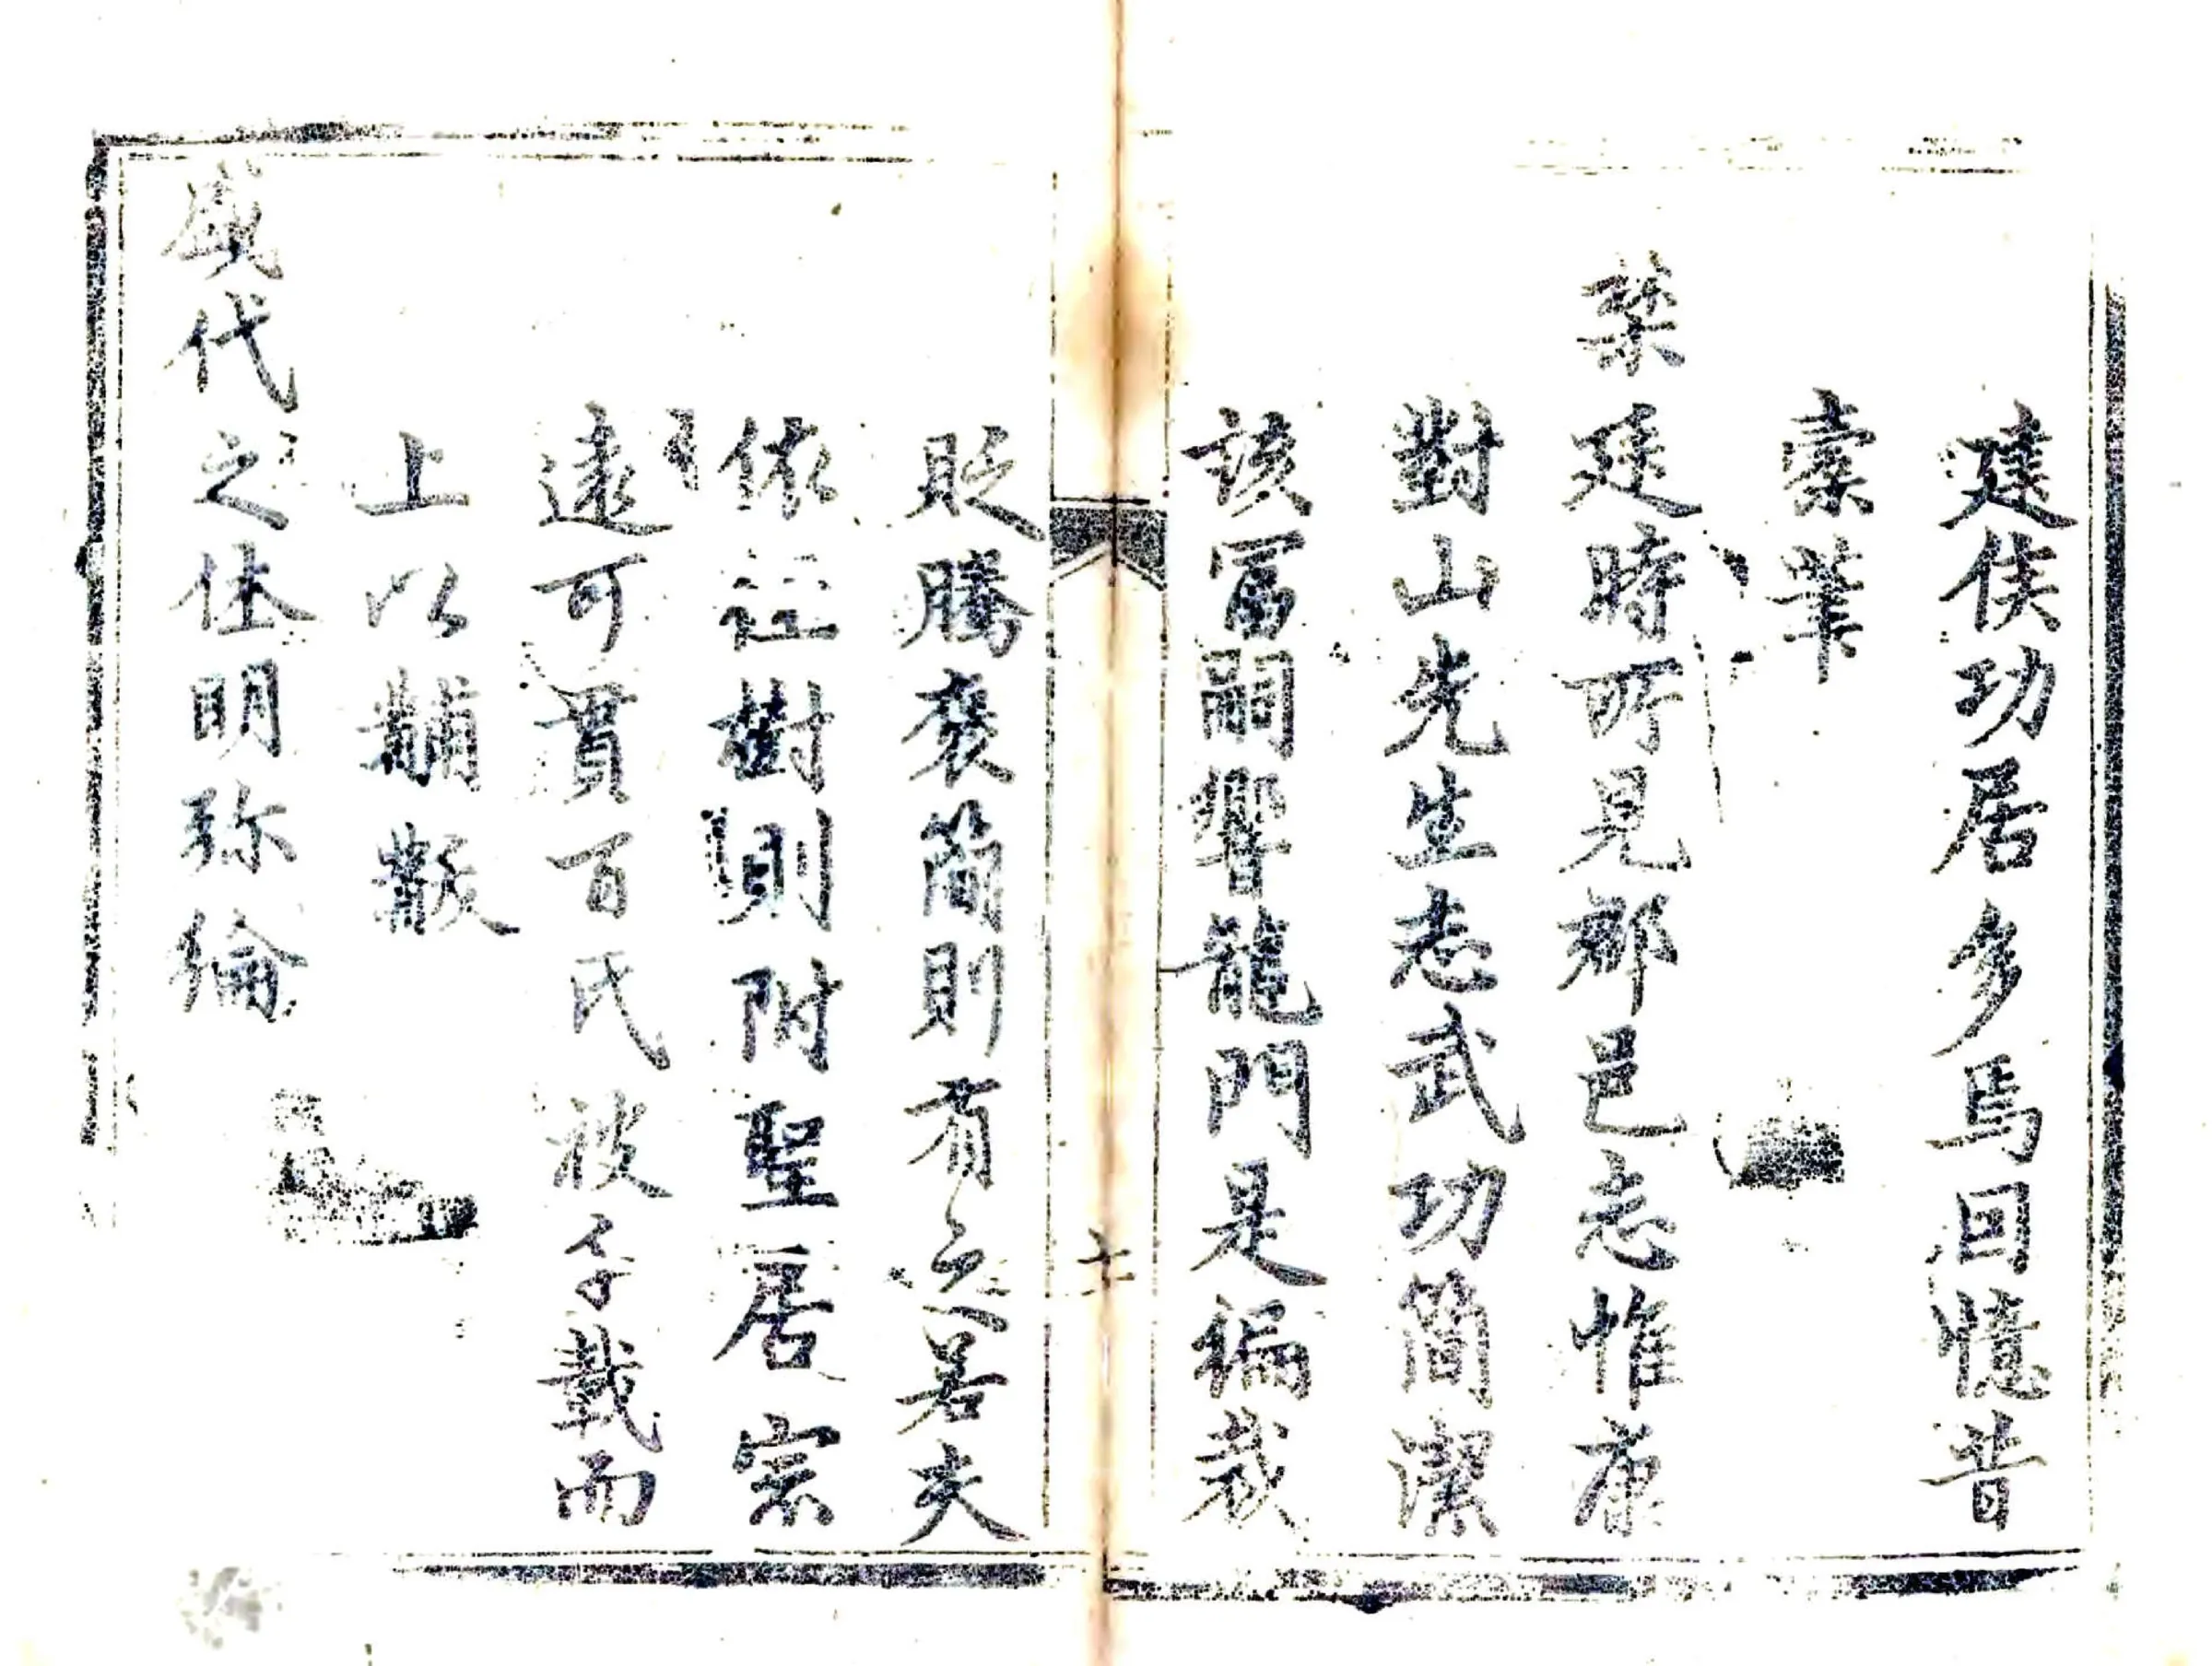 建侯功居多焉回憶昔
橐筆
禁廷時所見郡邑志惟康
對山先生志武功簡潔
該冨嗣響龍門是編裁
貶騰褒簡則有之若夫
依社樹則附聖居宗
遠可貫百氏被千載而
上以黼黻
盛代之休明弥綸
七